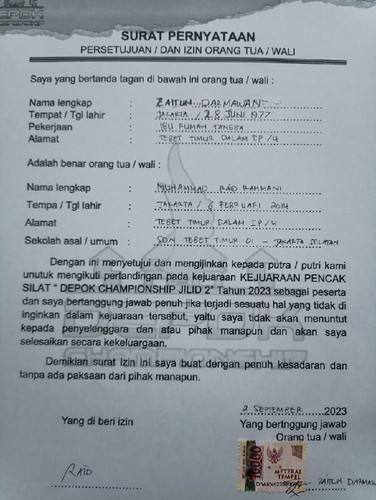 SURAT PERNYATAAN
PERSETUJUAN / DAN IZIN ORANG TUA / WALI
Saya yang bertanda tagan di bawah ini orang tua / wali :
Nama lengkap : ZAITUN DARMAWAN
Tempat / Tgl lahir : JAKARTA / 28 JUNI 1977
Pekerjaan : IBU RUMAH TANGGA
Alamat : TEBET TIMUR DALAM IP/4
Adalah benar orang tua / wali :
Nama lengkap : MUHAMMAD RAID RAHMANI
Tempa / Tgl lahir : JAKARTA / 8 FEBRUARI 2014
Alamat : TEBET TIMUR DALAM IP/4
Sekolah asal / umum : SDN TEBET TIMUR 01 - JAKARTA SELATAN
Dengan ini menyetujui dan mengijinkan kepada putra / putri kami
unutuk mengikuti pertandingan pada kejuaraan KEJUARAAN PENCAK
SILAT " DEPOK CHAMPIONSHIP JILID 2" Tahun 2023 sebagai peserta
dan saya bertanggung jawab penuh jika terjadi sesuatu hal yang tidak di
inginkan dalam kejuaraan tersebut, yaitu saya tidak akan menuntut
kepada penyelenggara dan atau pihak manapun dan akan saya
selesaikan secara kekeluargaan.
Demikian surat izin ini saya buat dengan penuh kesadaran dan
tanpa ada paksaan dari pihak manapun.
2 SEPTEMBER 2023
Yang di beri izin
Yang bertnggung jawab
Orang tua / wali
10000
METERAI
TEMPEL
RAID
ZAITUN DARMAW